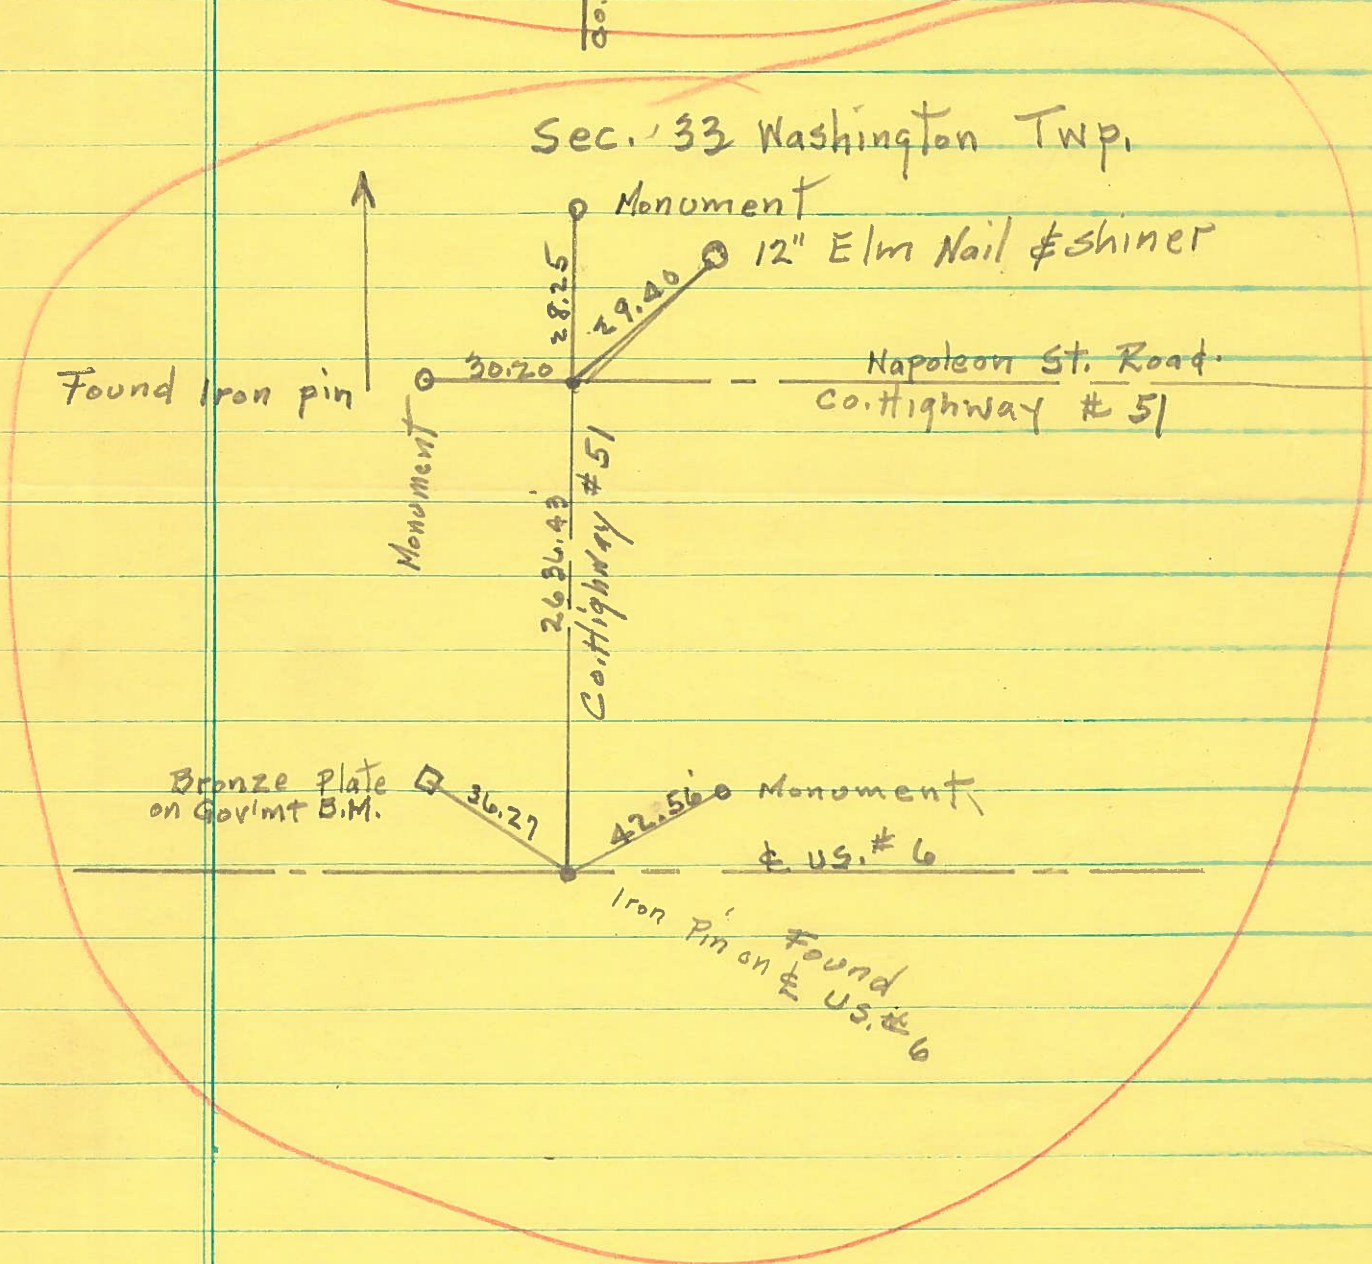 Co.
Sec. 33 Washington Twp.
Monument
12" Elm Nail & shiner
28.25
29.40
30.20
Found Iron pin
Napoleon St. Road.
Co. Highway # 51
Monument
2636.43'
Co. Highway # 51
Bronze Plate
on Gov'mt B.M.
36.27
42.56
Monument
℄ US. # 6
Iron Pin Found
on ℄ US. # 6